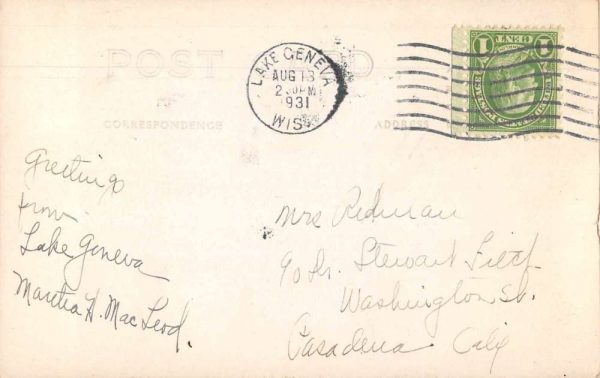 POST CARD
CORRESPONDENCE
ADDRESS
LAKE GENEVA
AUG 13
2 30PM
1931
WIS.
1 CENT 1
Greetings
from
Lake Geneva
Martha H. MacLeod.
Mrs Redman
Stewart
Washington St.
Pasadena Calif